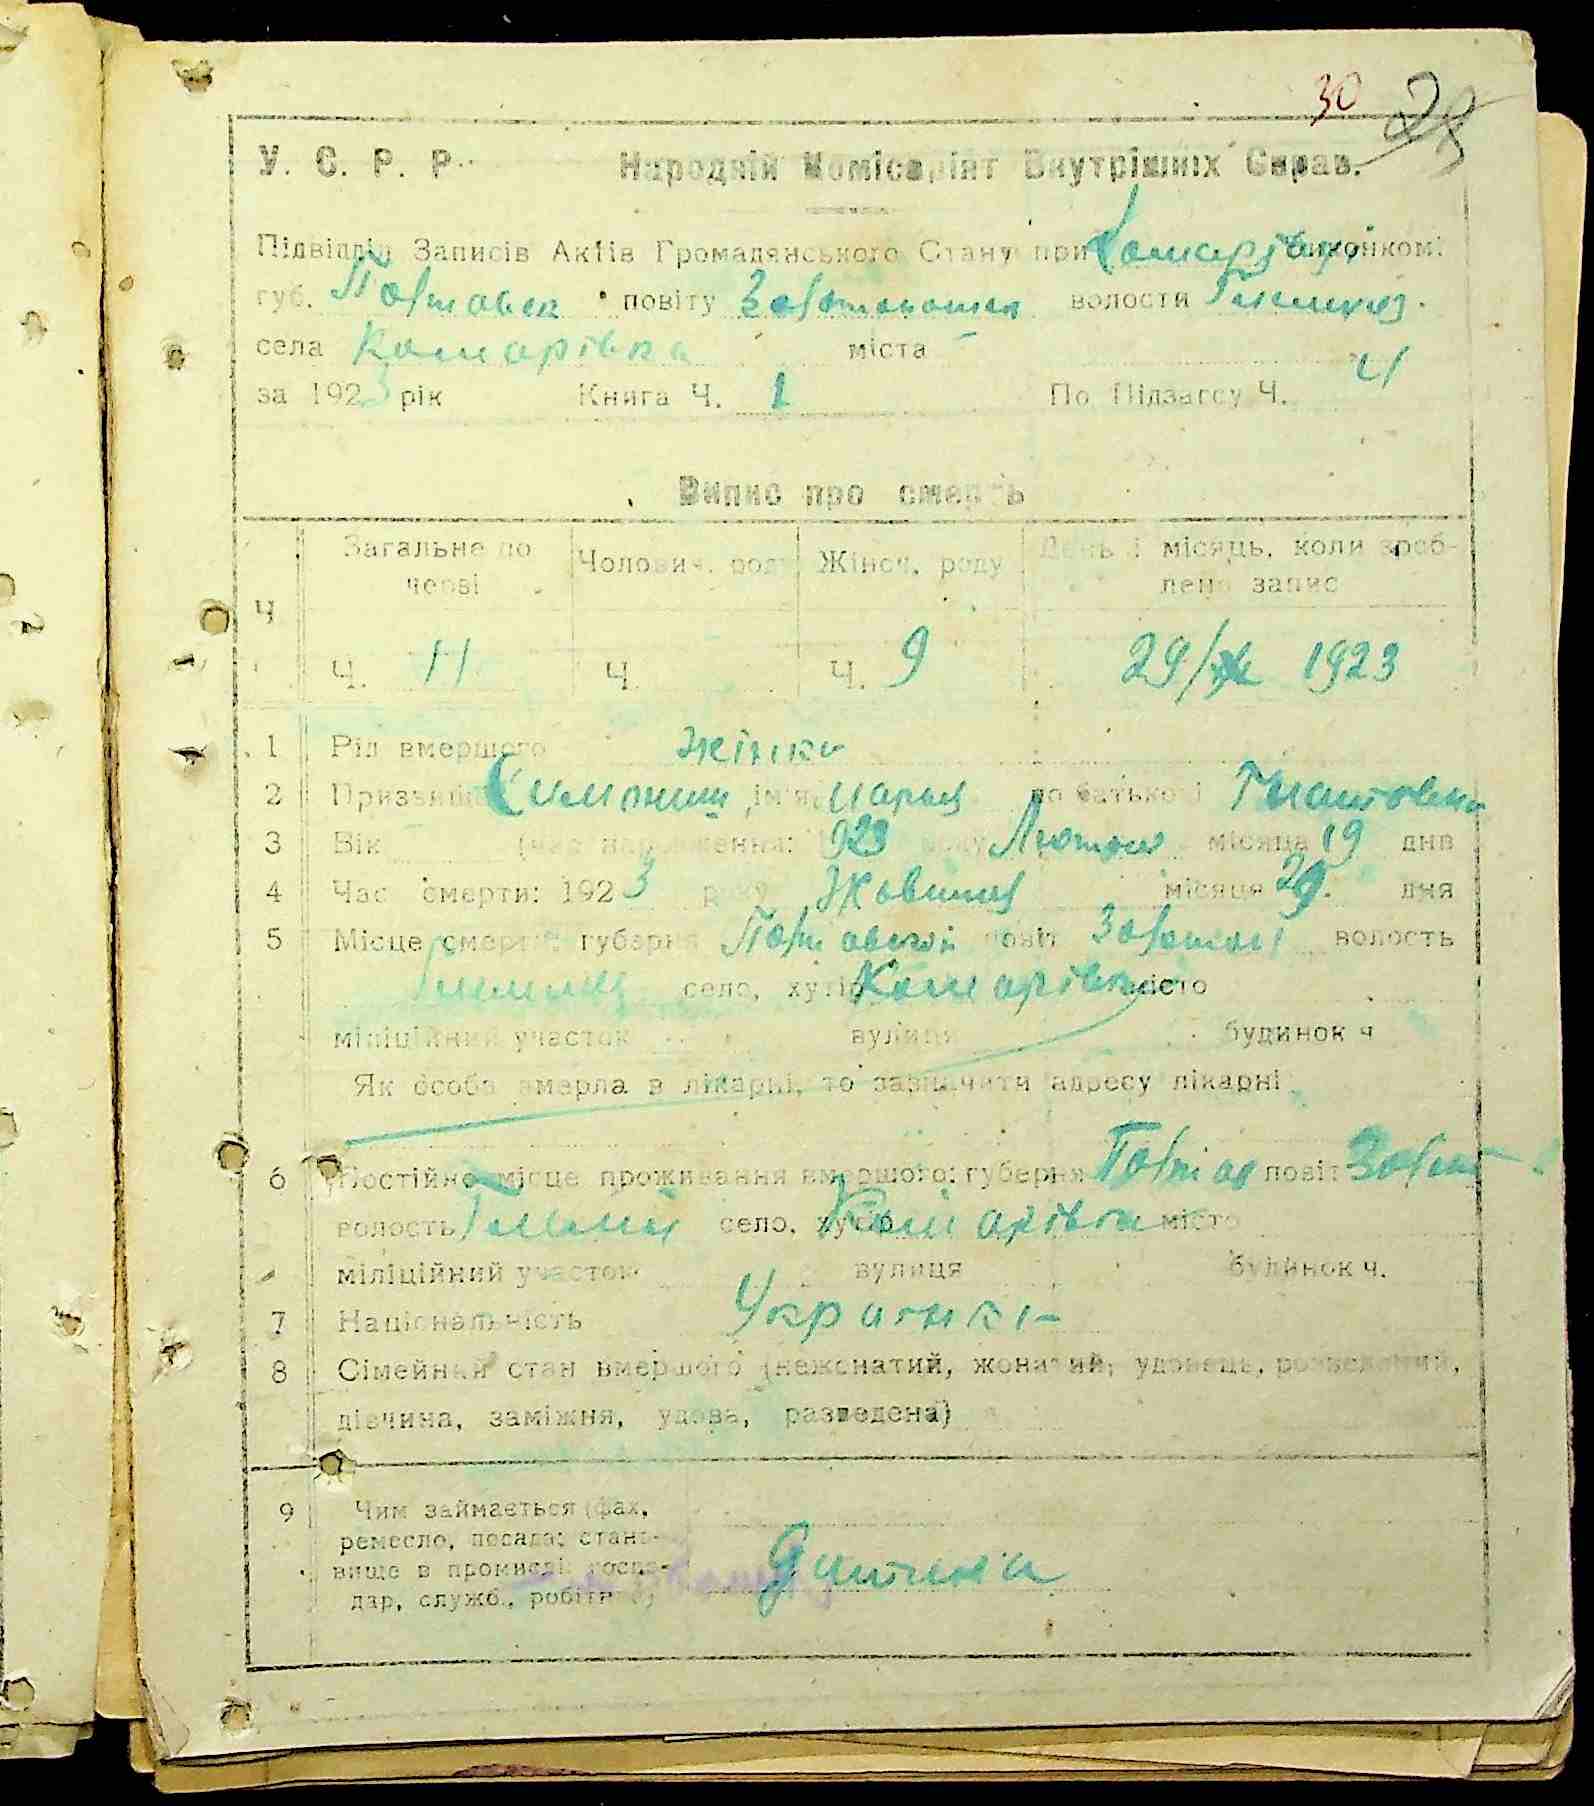 30 28
У. С. Р. Р. Народній Комісаріят Внутрішніх Справ.
Підвідділ Записів Актів Громадянського Стану при виконком.
губ. Полтавск повіту Золотоношск волости
села Комарівка міста
за 1923 рік Книга Ч. 1 По Підзагсу Ч. 41
Випис про смерть
Ч Загальне по Чолович. роду Жіноч. роду День і місяць, коли зроб-
черзі лено запис
Ч. 11 Ч. Ч. 9 29/ 1923
1 Рід вмершого жінка
2 Призвище ім'я Марья по батькові Гнатовна
3 Вік (час народження: 1923 року Лютого місяца 19 дня
4 Час смерти: 1923 року Жовтня місяця 29. дня
5 Місце смерти: губерня Полтавской повіт Золотон волость
село, хутір Комарівка місто
міліційний участок вулиця будинок ч
Як особа вмерла в лікарні, то зазначити адресу лікарні
6 Постійне місце проживання вмершого: губерня Полтав повіт Золот
волость село, хутір Комарівка місто
міліційний участок вулиця будинок ч.
7 Національність Українка
8 Сімейний стан вмершого (нежонатий, жонатий, удовець, розведений,
дівчина, заміжня, удова, разведена)
9 Чим займається (фах,
ремесло, посада: стано-
вище в промислі: госпо-
дар, служб., робітник) Дитина